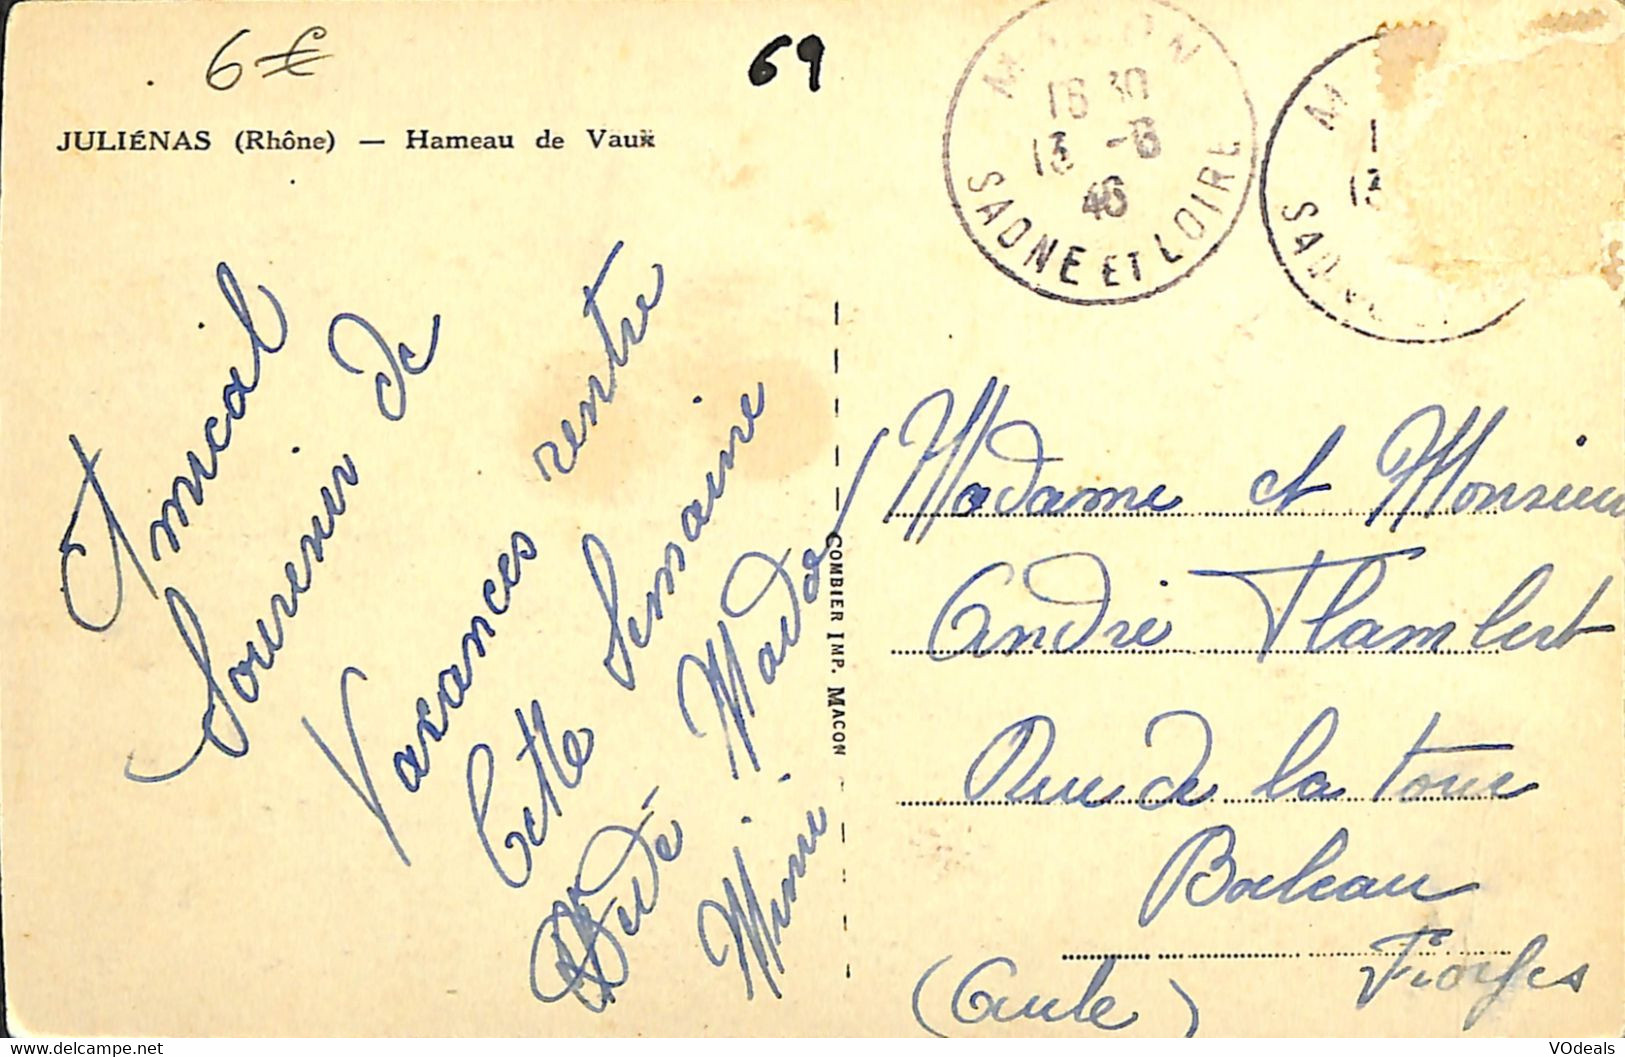 6 €
69
JULIÉNAS (Rhône) — Hameau de Vaux
MACON
18 30
13 -8
46
SAONE ET LOIRE
M
1
13
SAON
Amical
Souvenir de
Vacances rentre
Cette Semaine
Dédé Mado
Mimi
COMBIER IMP. MACON
Madame et Monsieur
André Flambert
Rue de la tour
(Aube)
delcampe.net
VOdeals